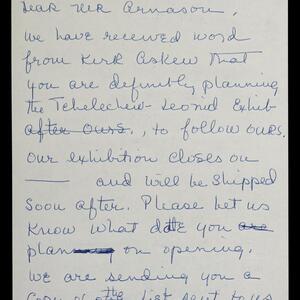 Dear Mr Arnason,
We have received word
from Kirk Askew that
you are definitly planning
the Tchelechew-Leonid Exhib
after ours., to follow ours.
Our exhibition closes on
—— and will be shipped
soon after. Please let us
know what date you are
planning on opening.
We are sending you a
Copy of the list sent to us